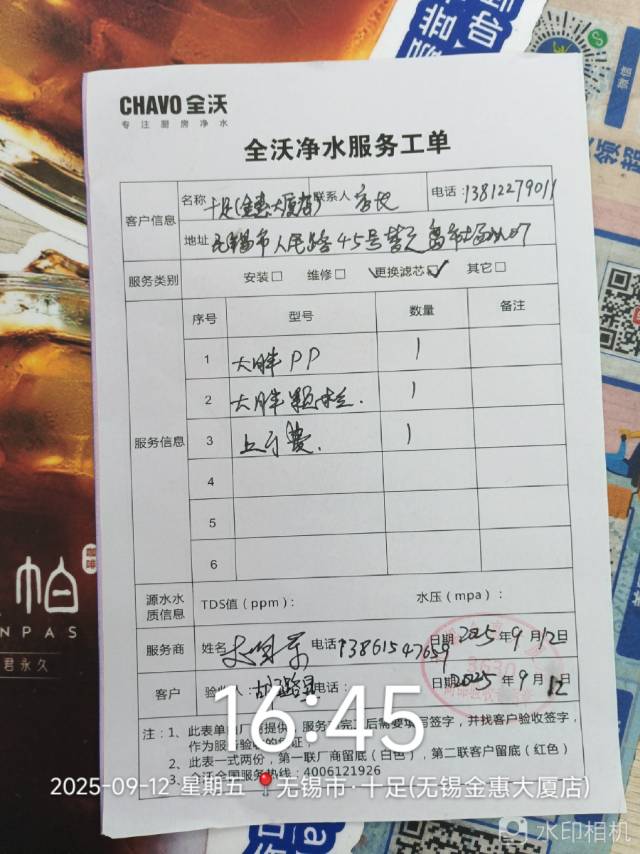 CHAVO 全沃
专注厨房净水
全沃净水服务工单
客户信息
名称 十足(金惠大厦店) 联系人 店长 电话:13812279011
地址 无锡市人民路45号
服务类别 安装□ 维修□ 更换滤芯☑ 其它□
服务信息
序号 型号 数量 备注
1 大胖PP 1
2 大胖颗粒. 1
3 上门费. 1
4
5
6
源水水质信息 TDS值(ppm): 水压(mpa):
服务商 姓名 电话 13861547659 日期 2025年9月12日
客户 验收人: 电话: 日期 2025年9月12日
注:1、此表单由厂商提供,服务商完工后需要填写签字,并找客户验收签字,
作为服务验收的凭证
2、此表一式两份,第一联厂商留底(白色),第二联客户留底(红色)
3、全沃全国服务热线:4006121926
16:45
2025-09-12 星期五 无锡市·十足(无锡金惠大厦店)
水印相机
帕
咖啡
NPAS
君永久
微信